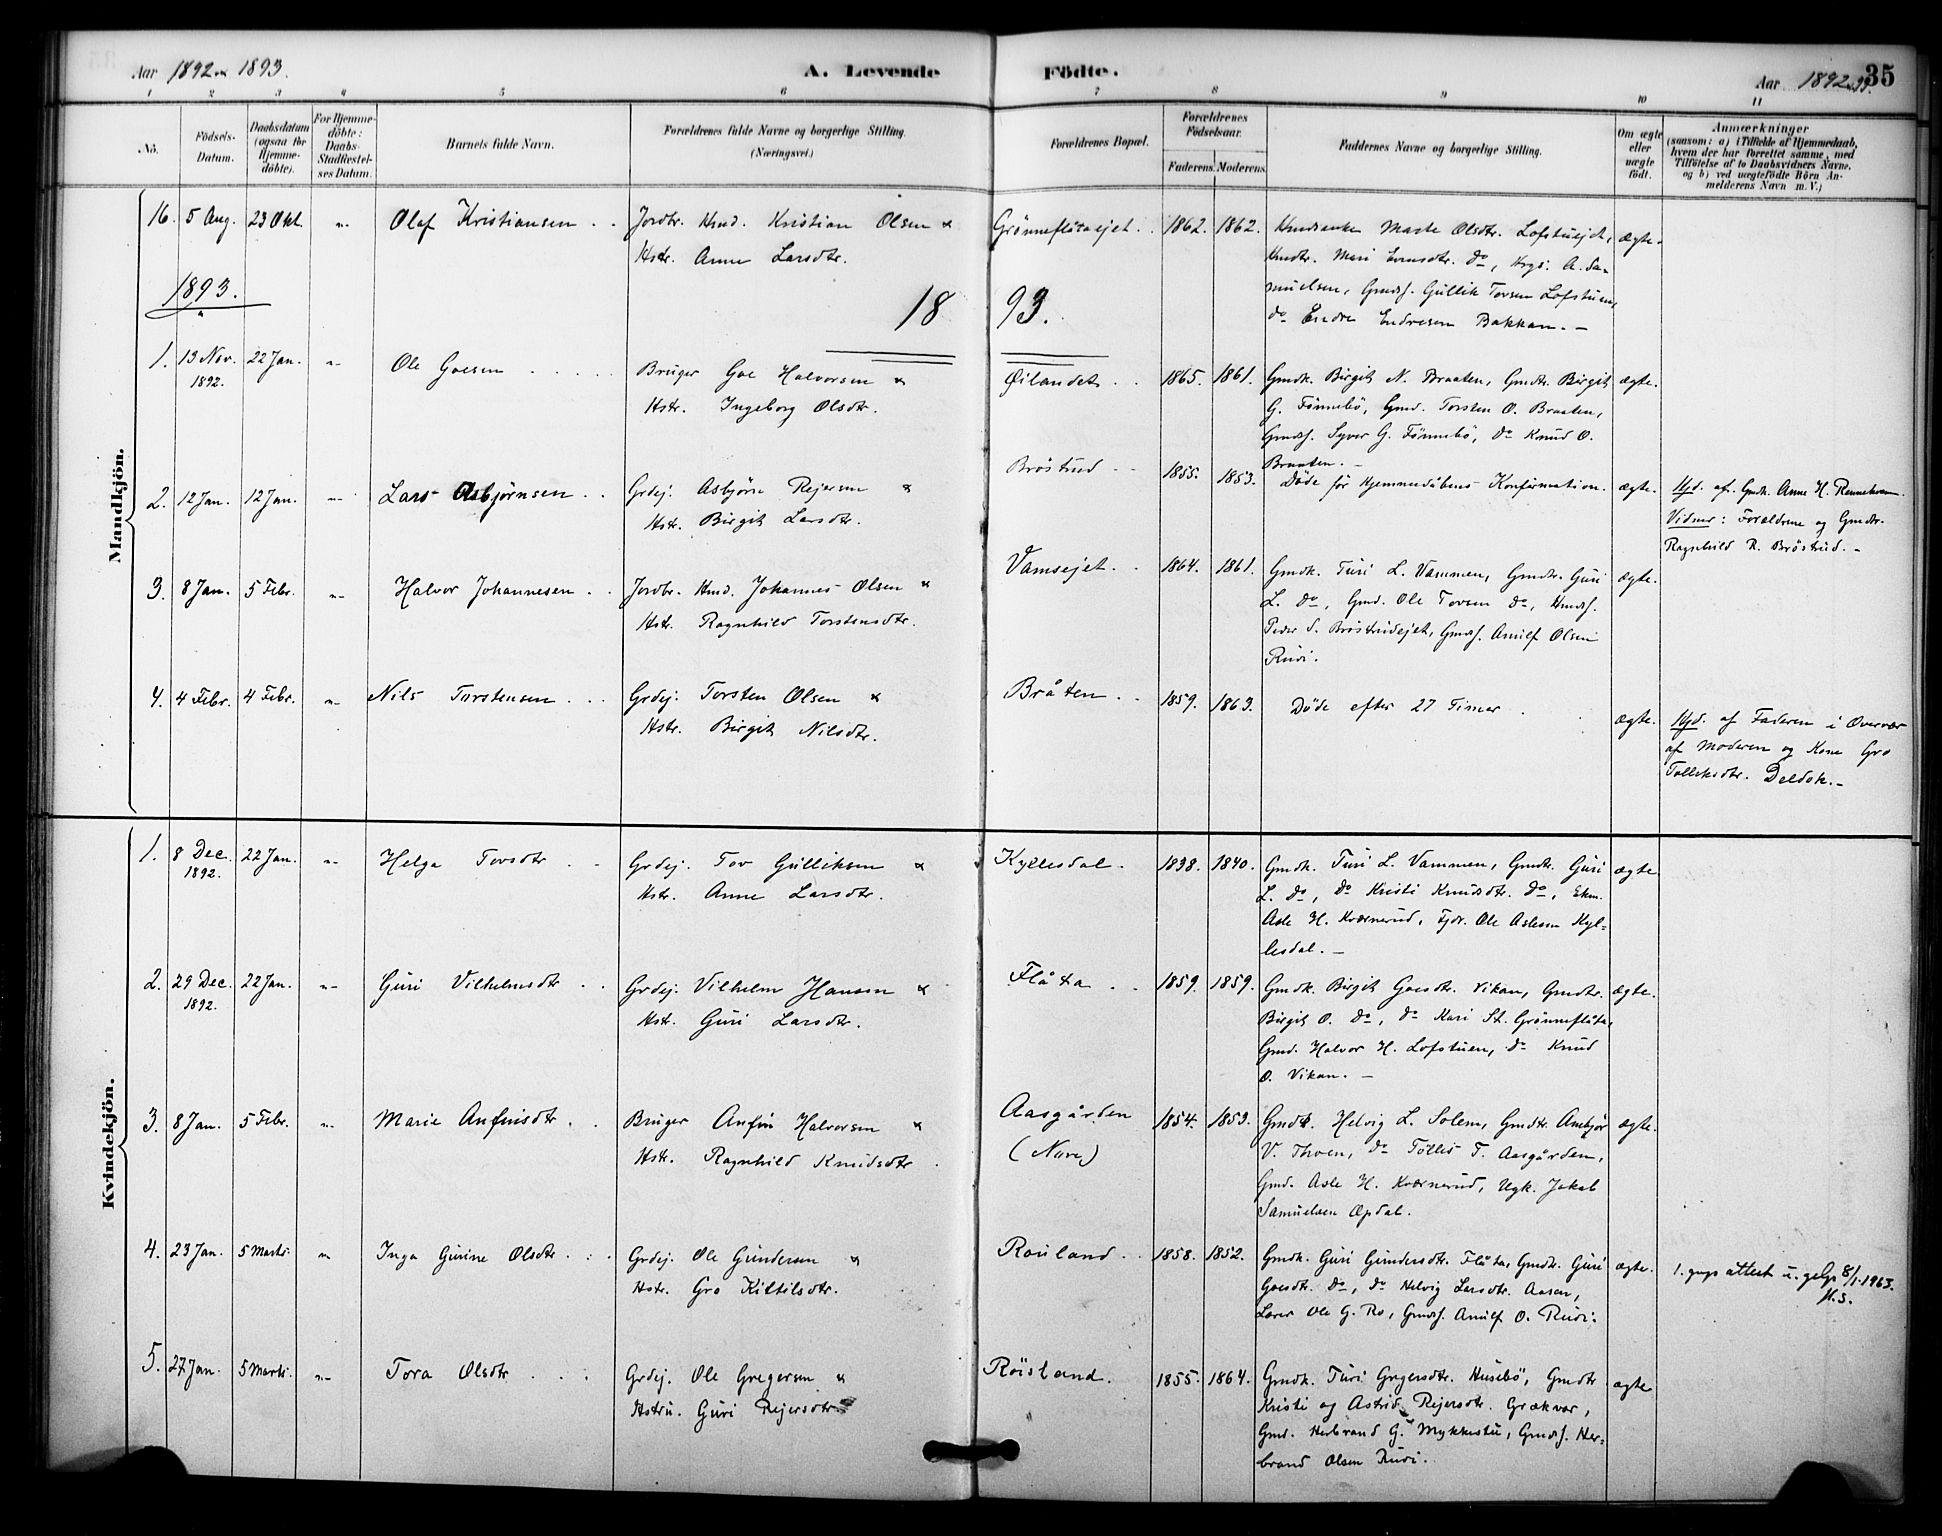 Aar 1892 og 1893.
A. Levende Födte.
Aar 1892 93.
35
1 2 3 4 5 6 7 8 9 10 11
No.
Födsels-Datum.
Daabsdatum (ogsaa for Hjemme-döbte).
For Hjemme-döbte: Daabs-Stadfæstel-ses Datum.
Barnets fulde Navn.
Forældrenes fulde Navne og borgerlige Stilling. (Næringsvei.)
Forældrenes Bopæl.
Forældrenes Födselsaar.
Faderens. Moderens.
Faddernes Navne og borgerlige Stilling.
Om ægte eller uægte födt.
Anmærkninger
(saasom: a) i Tilfælde af Hjemmedaab,
hvem der har forrettet samme, med
Tilföielse af to Daabsvidners Navne,
og b) ved uægtefödte Börn An-
melderens Navn m. V.)
Mandkjön.
16. 5 Aug. 23 Okt. Olaf Kristiansen
Jordbr. Hmd. Kristian Olsen &
Hstr. Anne Larsdtr.
Grønneflåtaejet. 1862. 1862.
Marte Olsdtr. Lofstuejet,
Hmdtr. Mari do, A. Sa-
muelsen, Gmds. Gullik Tovsen Lofstuen,
do Endre Endresen Bakkan.
ægte.
1893.
1893.
1. 13 Nov. 1892. 22 Jan. Ole Goesen
Bruger Goe Halvorsen &
Hstr. Ingeborg Olsdtr.
Øilandet 1865. 1861.
Gmdk. Birgit N. Braaten, Gmdtr. Birgit
G. Fønnebø, Gmd. Torsten O. Braaten,
Gmds. Syver G. Fønnebø, do Knud O.
Braaten.
ægte.
2. 12 Jan. 12 Jan. Lars Asbjørnsen
Grdej. Asbjørn Rejersen &
Hstr. Birgit Larsdtr.
Brøstrud 1855. 1853.
Døde før Hjemmedåbens Konfirmation.
ægte.
Hjd. af Gmdk. Anne H.
Vidner: Forældrene og Gmdtr.
Ragnhild R. Brøstrud.
3. 8 Jan. 5 Febr. Halvor Johannesen
Jordbr. Hmd. Johannes Olsen &
Hstr. Ragnhild Torstensdtr.
Vamsejet. 1864. 1861.
Gmdk. Turi L. Vammen, Gmdtr. Guri
L. do, Gmd. Ole Tovsen do, Hmds.
Peder S. Brøstrudejet, Gmds. Anulf Olsen
Rudi.
ægte.
4. 4 Febr. 4 Febr. Nils Torstensen
Grdej. Torsten Olsen &
Hstr. Birgit Nilsdtr.
Bråten 1859. 1863.
Døde efter 27 Timer
ægte.
Hjd. af Faderen i Overvær
af Moderen og Kone Gro
Tolleksdtr. Deldok.
Kvindekjön.
1. 8 Dec. 1892. 22 Jan. Helga Tovsdtr
Grdej. Tov Gulliksen &
Hstr. Anne Larsdtr.
Kyllesdal. 1838. 1840.
Gmdk. Turi L. Vammen, Gmdtr. Guri
L. do, do Kristi Knudsdtr. do, Ekm.
Asle H. Kværnerud, Fjdr. Ole Aslesen Kyl-
lesdal.
ægte
2. 29 Dec. 1892. 22 Jan. Guri Vilhelmsdtr
Grdej. Vilhelm Hansen &
Hstr. Guri Larsdtr.
Flåta 1859. 1859.
Gmdk. Birgit Goesdtr. Vikan, Gmdtr.
Birgit O. do, do Kari St. Grønneflåta,
Gmd. Halvor H. Lofstuen, do Knud
O. Vikan.
ægte.
3. 8 Jan. 5 Febr. Marie Anfinsdtr.
Bruger Anfin Halvorsen &
Hstr. Ragnhild Knudsdtr
Aasgården
(Nore) 1854. 1853.
Gmdk. Helvig L. Solem, Gmdtr. Ambjør
V. Thoen, do Tøllis T. Aasgården,
Gmd. Asle H. Kværnerud, Ugk. Jakob
Samuelsen Opdal.
ægte.
4. 23 Jan. 5 Marts. Inga Gurine Olsdtr.
Grdej. Ole Gundersen &
Hstr. Gro Kittilsdtr.
Rouland 1858. 1852.
Gmdk. Guri Gundersdtr. Flåta, Gmdtr. Guri
Goesdtr. do, do Helvig Larsdtr. Aasen,
Lærer Ole G. Ro, Gmds. Anulf O. Rudi.
ægte.
1. gngs attest u. gebyr 8/1-1963.
H.S.
5. 27 Jan. 5 Marts. Tora Olsdtr
Grdej. Ole Gregersen &
Hstru. Guri Rejersdtr.
Røisland. 1855. 1864.
Gmdk. Turi Grgersdtr. Husebø, Gmdtr
Kristi og Astrid Rejersdtr. Grækvar,
Gmd. Herbrand G. Mykkestu, Gmds. Her-
brand Olsen Rudi.
ægte